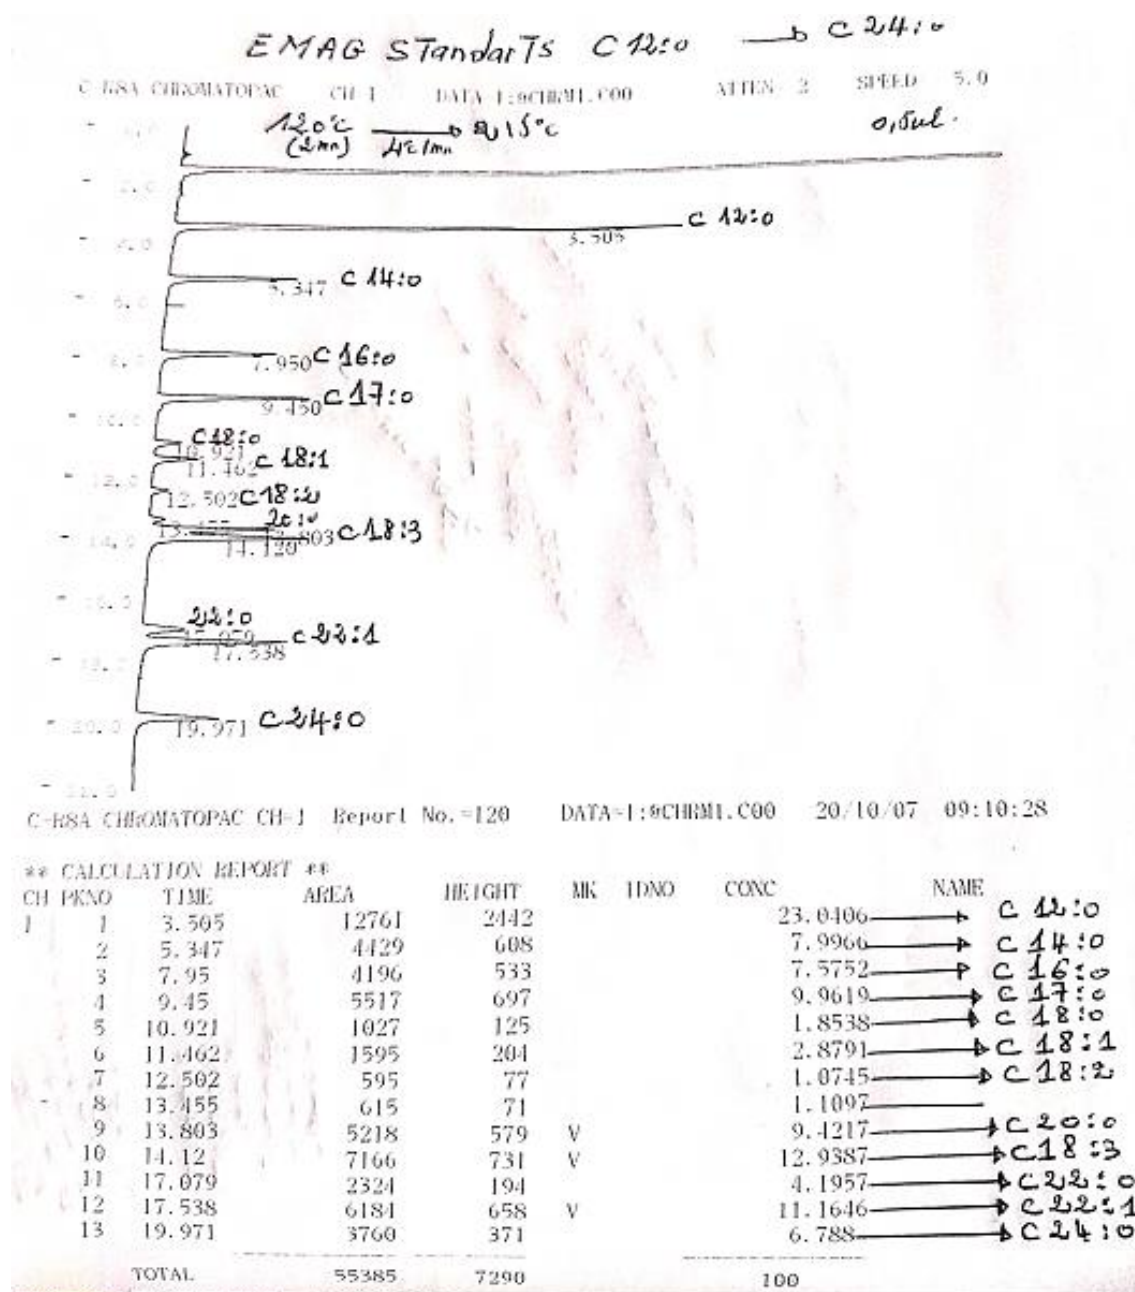 EMAG STandarTs C 12:0 → C 24:0
C-R8A CHROMATOPAC CH-1 DATA-1:@CHRM1.C00 ATTEN 2 SPEED 5.0
120°c → 215°c 0,5ul.
(2mn) 4°c/mn
C 12:0
3.505
C 14:0
5.347
7.950 C 16:0
9.450 C 17:0
C 18:0
10.921
11.462 C 18:1
12.502 C 18:2
20:0
13.803 C 18:3
14.120
22:0
17.079 C 22:1
17.538
19.971 C 24:0
C-R8A CHROMATOPAC CH-1 Report No.=120 DATA=1:@CHRM1.C00 20/10/07 09:10:28
** CALCULATION REPORT **
CH PKNO TIME AREA HEIGHT MK IDNO CONC NAME
1 1 3.505 12761 2442 23.0406 → C 12:0
2 5.347 4429 608 7.9966 → C 14:0
3 7.95 4196 533 7.5752 → C 16:0
4 9.45 5517 697 9.9619 → C 17:0
5 10.921 1027 125 1.8538 → C 18:0
6 11.462 1595 204 2.8791 → C 18:1
7 12.502 595 77 1.0745 → C 18:2
8 13.455 615 71 1.1097
9 13.803 5218 579 V 9.4217 → C 20:0
10 14.12 7166 731 V 12.9387 → C 18:3
11 17.079 2324 194 4.1957 → C 22:0
12 17.538 6184 658 V 11.1646 → C 22:1
13 19.971 3760 371 6.788 → C 24:0
TOTAL 55385 7290 100